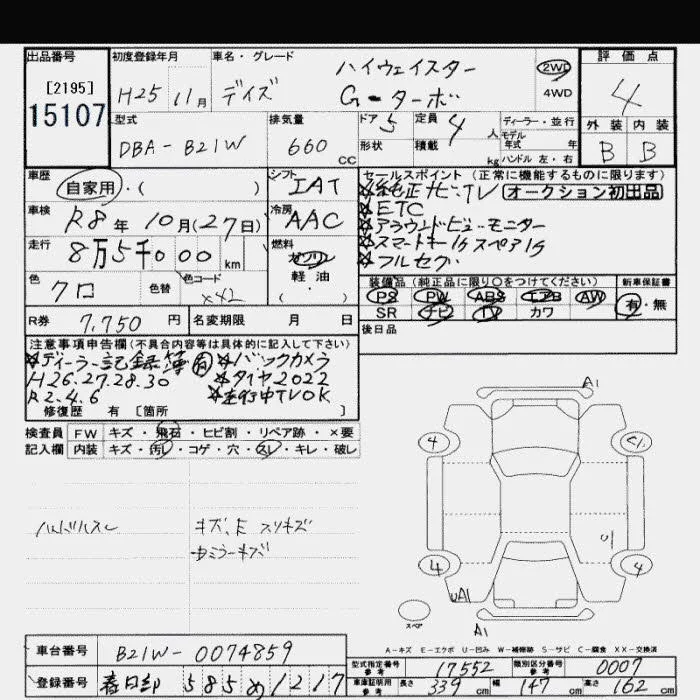 出品番号 初度登録年月 車名・グレード 評価点
[2195]
15107
H25 11月 デイズ ハイウェイスター
G・ターボ
2WD
4WD
4
外装 内装
B B
型式 排気量 ドア 5 定員 4人 ディーラー・並行
DBA-B21W 660CC 形状 積載 kg モデル年式 年
ハンドル 左・右
車歴 自家用・( ) シフト IAT
車検 R8年10月(27日) 冷房 AAC
走行 8万5千000km 燃料 ガソリン
軽・油
・( )
色 クロ 色替 色コード X42
R券 7,750円 名変期限 月 日
セールスポイント (正常に機能するものに限ります)
☆純正ナビ・TV オークション初出品
☆ETC
☆アラウンドビューモニター
☆スマートキー1ケスペア1ケ
☆フルセグ
装備品 (純正品に限り○をつけてください) 新車保証書
PS PW ABS エアB AW 有・無
SR ナビ TV カワ
後日品
注意事項申告欄(不具合内容等は具体的に記入して下さい)
☆ディーラー記録簿 有 ☆バックカメラ
H26.27.28.30 ☆タイヤ2022
R2.4.6 ☆走行中TVOK
修復歴 有 [箇所 ]
検査員 FW キズ・飛石・ヒビ割・リペア跡・×要
記入欄 内装 キズ・汚レ・コゲ・穴・スレ・キレ・破レ
ハンドルスレ キズ、E スリキズ
A1
4
4
4
U
UA1
A1
スペア
A-キズ E-エクボ U-凹み W-補修跡 S-サビ C-腐食 XX-交換済
車台番号 B21W-0074859
登録番号 春日部 585 め 1217
型式指定番号 参考 17552 類別区分番号 参考 0007
車庫証明用 参考 長さ 339cm 幅 147cm 高さ 162cm